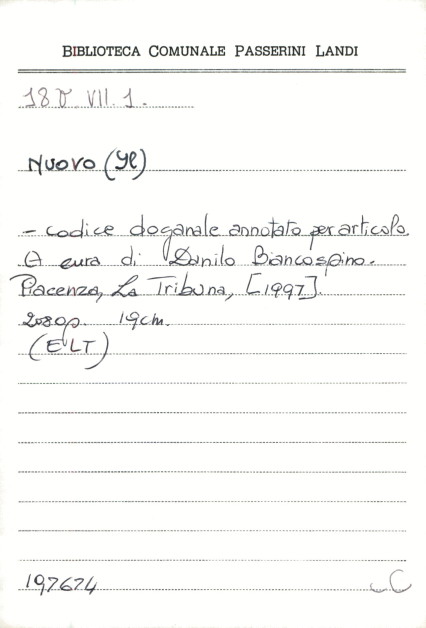 BIBLIOTECA COMUNALE PASSERINI LANDI
18 D. VII. 1.
NUOVO (Il)
- codice doganale annotato per articolo.
A cura di Danilo Biancospino.
Piacenza, La Tribuna, [1997].
2080p. 19cm.
(ELT)
197674